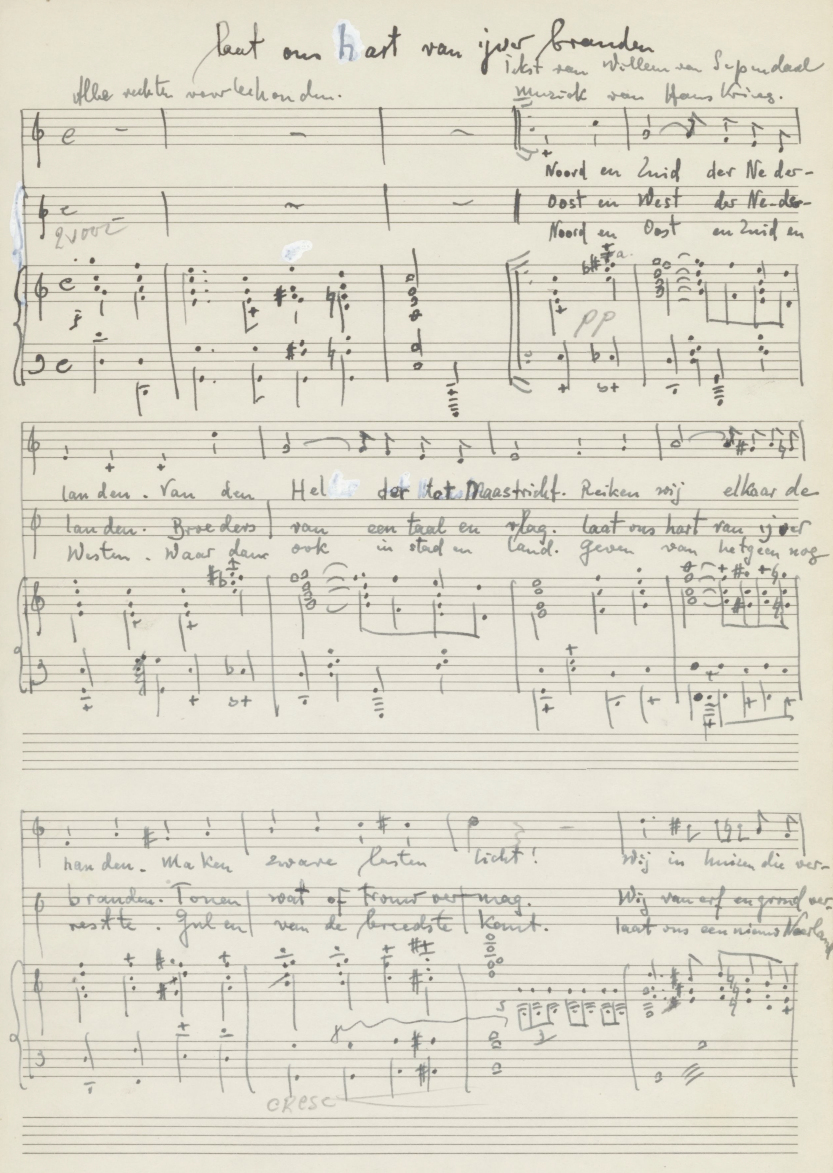 laat ons hart van ijver branden
Tekst van Willem van
Alle rechten voorbehouden.
muziek van Hans Krieg.
Noord en Zuid der Ne der-
Oost en West der Ne-der-
Noord en Oost en Zuid en
2 voor
a.
pp
landen. Van den Hel der tot Maastricht. Reiken wij elkaar de
landen. Broeders van een taal en vlag. laat ons hart van ijver
Westen. Waar dan ook in stad en land. Geven van hetgeen nog
handen. Maken zware lasten licht! Wij in huizen die ver-
branden. Tonen wat of trouw vermag. Wij van erf en grond ver-
restte. Gul en van de breedste kant. laat ons een nieuw Neerland
5
3
CRESC